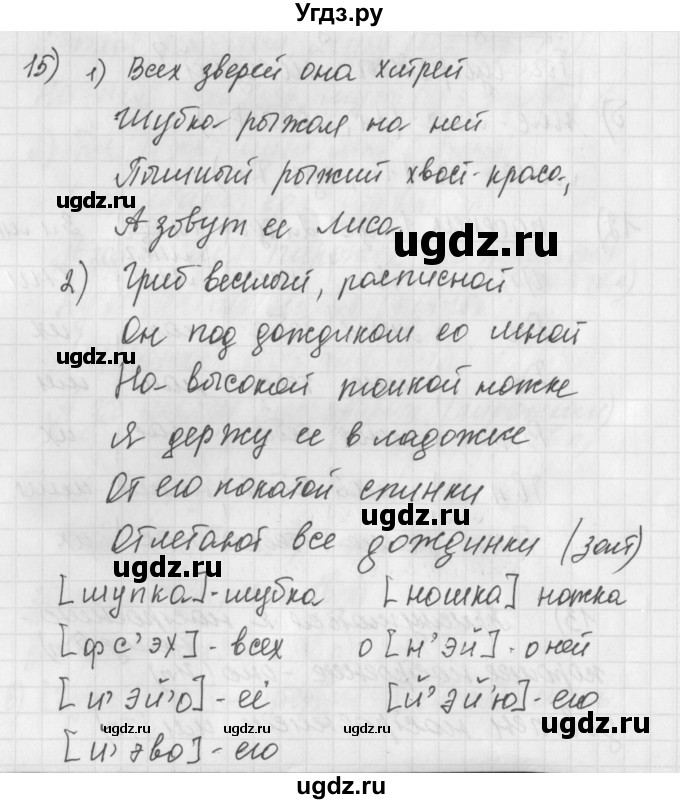 Угдз.ру
15) 1) Всех зверей она хитрей
Шубка рыжая на ней
Пышный рыжий хвост-краса,
А зовут ее Лиса.
ugdz.ru
2) Гриб веселый, расписной
Он под дождиком со мной
ugdz.ru
На высокой тонкой ножке
Я держу ее в ладожке
От его покатой спинки
ugdz.ru
Отлетают все дождинки (зонт)
ugdz.ru
[шупка]-шубка [ношка] ножка
[фс'эх] - всех о [н'эй] - о ней
ugdz.ru
[й'эй'о] - её [й'эй'ю] - его
ugdz.ru ugdz.ru
[й'эво] - его
ugdz.ru